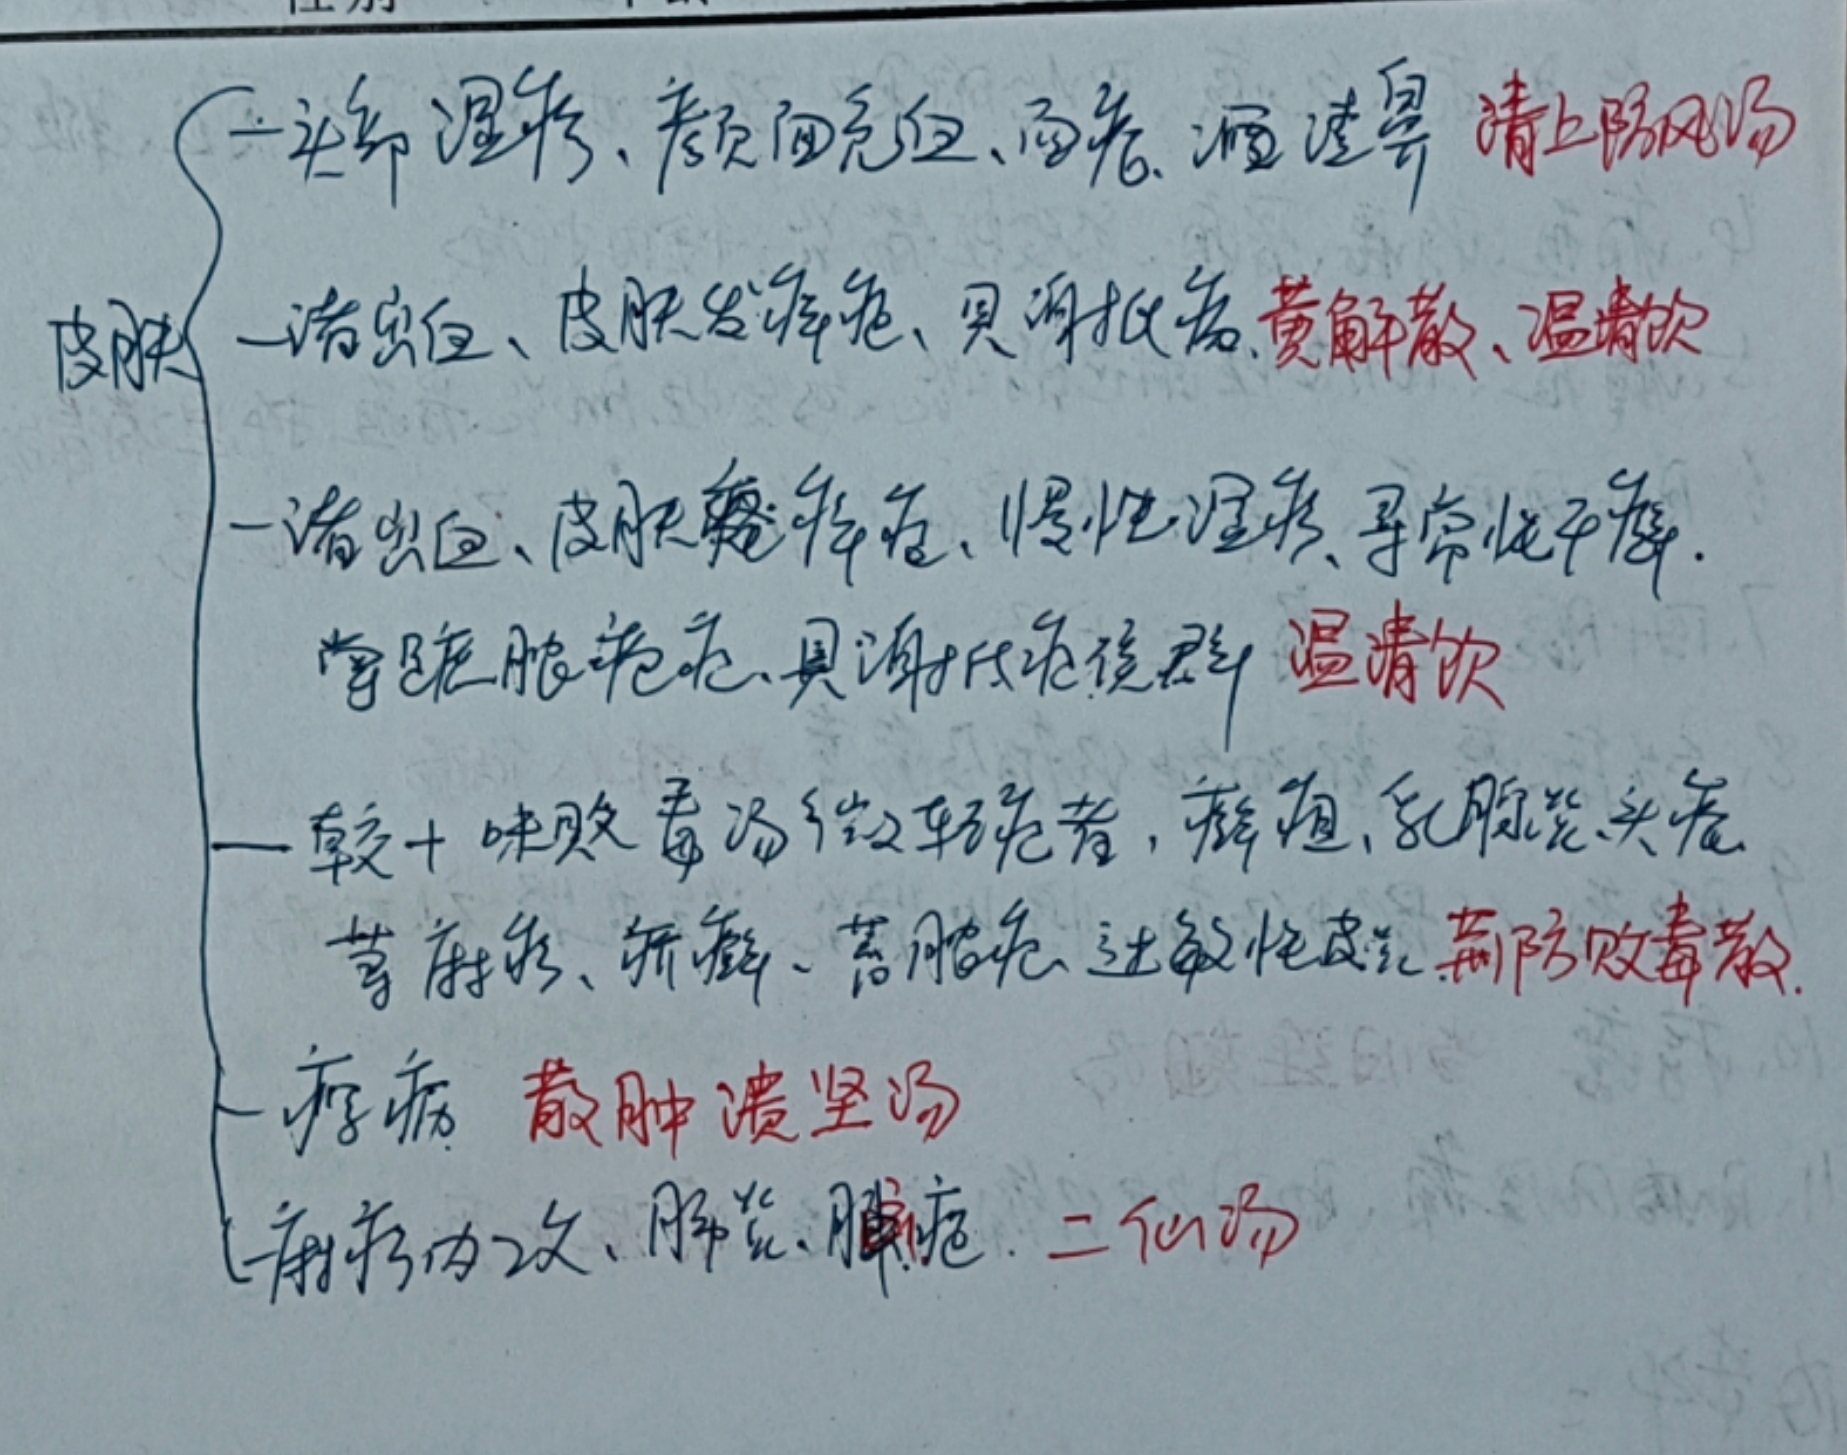 皮肤
一头部湿疹、颜面充血、面疮、酒渣鼻 清上防风汤
一诸出血、皮肤发痒疮、贝谢抵病、黄解散、温清饮
一诸出血、皮肤瘙痒症、慢性湿疹、寻常性干癣.
掌蹠脓疱症、贝谢抵症候群 温清饮
一较十味败毒汤微轻症者，癣疽、乳腺炎、头疮
荨麻疹、疥癣、蓄脓症、过敏性皮炎 荆防败毒散.
一痄病 散肿溃坚汤
一麻疹内攻、肺炎、脓疱. 二仙汤